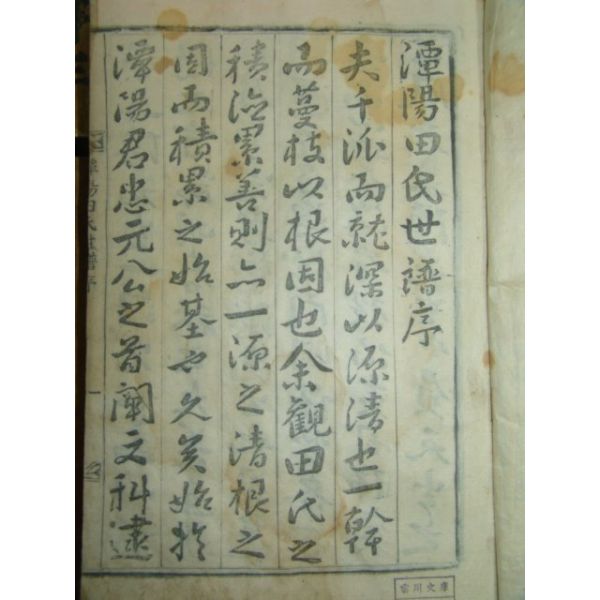 潭陽田氏世譜序
夫千派而就深以源清也一幹
而蔓枝以根固也余觀田氏之
積德累善則亦一源之清根之
固而積累之始基也久矣始於
潭陽君忠元公之首闡文科逮
潭陽田氏世譜序 一
雲川文庫